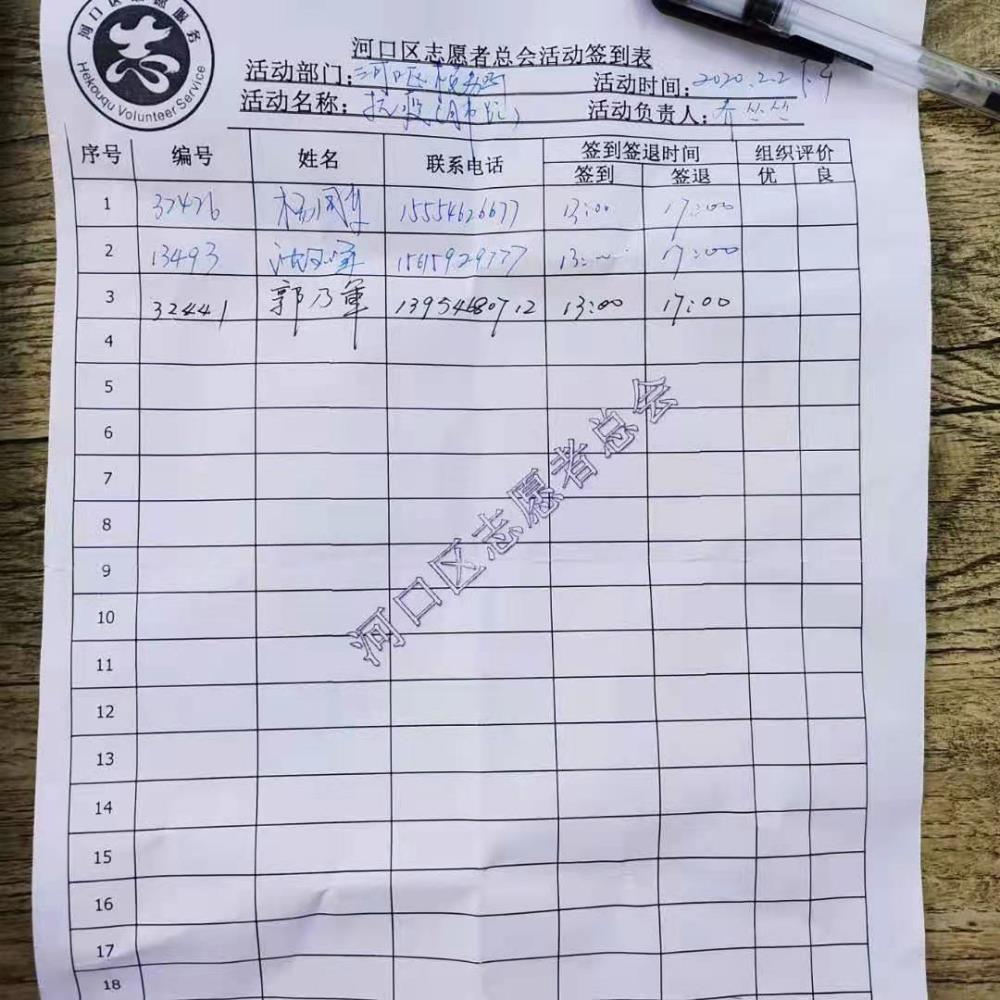 Hekouqu Volunteer Service
志
河口区志愿者总会活动签到表
活动部门: 河口区
活动时间: 2020.2.2 下午
活动名称: 抗疫
活动负责人: 乔丝丝
序号 编号 姓名 联系电话 签到签退时间 组织评价
签到 签退 优 良
1 32426 15554626677 13:00 17:00
2 13493 13: 17:00
3 32441 郭乃军 13954680712 13:00 17:00
4
5
6
7
8
9
10
11
12
13
14
15
16
17
18
河口区志愿者总会